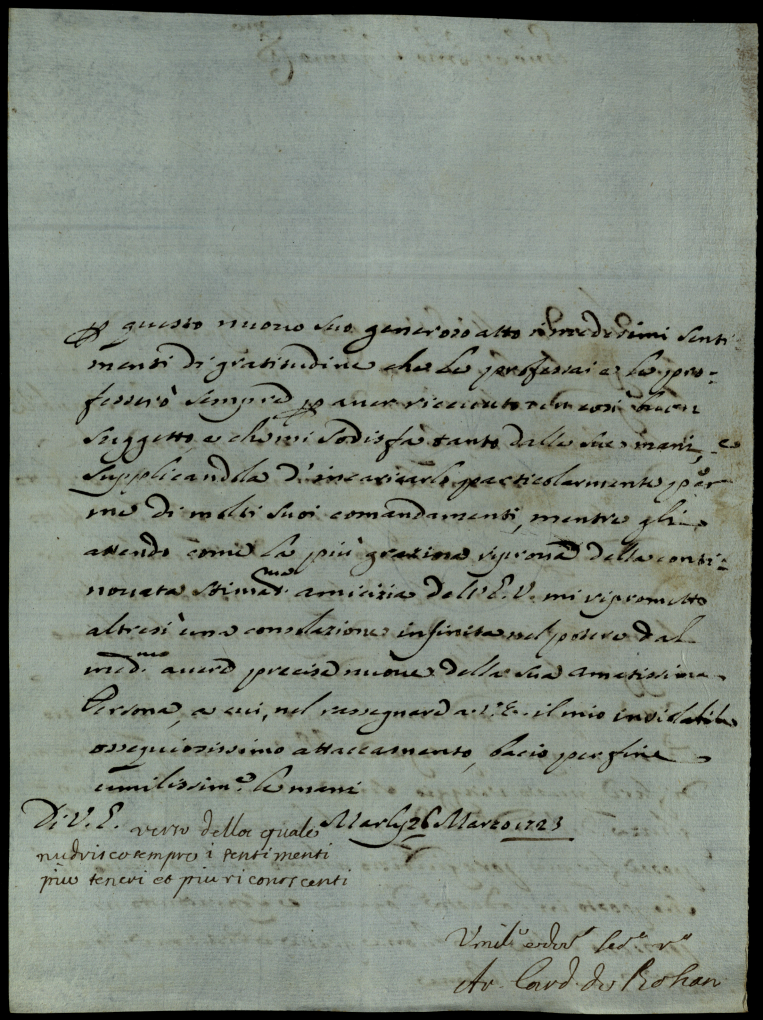 questo nuovo suo generoso atto i medesimi senti-
menti di gratitudine che le professai e le pro-
fesserò sempre p aver ricevuto un così buon
suggetto, e che mi sodisfà tanto dalle sue mani, e
supplicandola d'incaricarlo particolarmente per
me di molti suoi comandamenti, mentre gli
attendo come la più graziosa riprova della conti-
novata stimat.ma amicizia dell'E.V. mi riprometto
altresì una consolazione infinita nel potere dal
med.mo avere precise nuove della sua amatissima
Persona, a cui, nel rassegnare a V.E. il mio inviolabile
ossequiosissimo attaccamento, bacio per fine
umilissim.e le mani
Di V. E. Marly 26 Marzo 1723
verso della quale
nudrisco sempre i sentimenti
più teneri et piu riconoscenti
Umil.o
Ar. Card. de Rohan